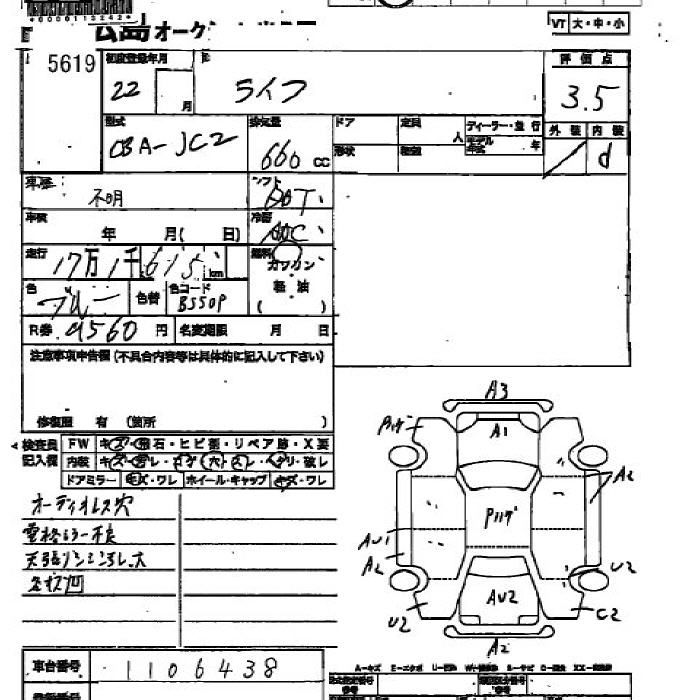 *0000113242*
広島オーク
VT 大・中・小
5619
初度登録年月
22 月
ライフ
評価点
3.5
型式
CBA-JC2
排気量
660 cc
ドア
定員 人
ディーラー・並行
モデル年式 年
形状
外装 内装
d
車歴
不明
シフト
AT
車検
年 月( 日)
冷房
AAC
走行
17万1千615 km
燃料
ガソリン
軽油
( )
色
ブルー
色替
色コード
B550P
R券 9560 円
名変期限 月 日
注意事項申告欄(不具合内容等は具体的に記入して下さい)
修復歴 有 (箇所 )
検査員記入欄
FW キズ・飛石・ヒビ割・リペア跡・X要
内装 キズ・汚レ・コゲ・穴・スレ・ヘタリ・破レ
ドアミラー キズ・ワレ ホイール・キャップ キズ・ワレ
オーディオレス穴
電格ミラー不良
各所凹
A3
A1
A2
Pハゲ
AU1
A2
U2
AU2
U2
C2
A2
車台番号
1106438